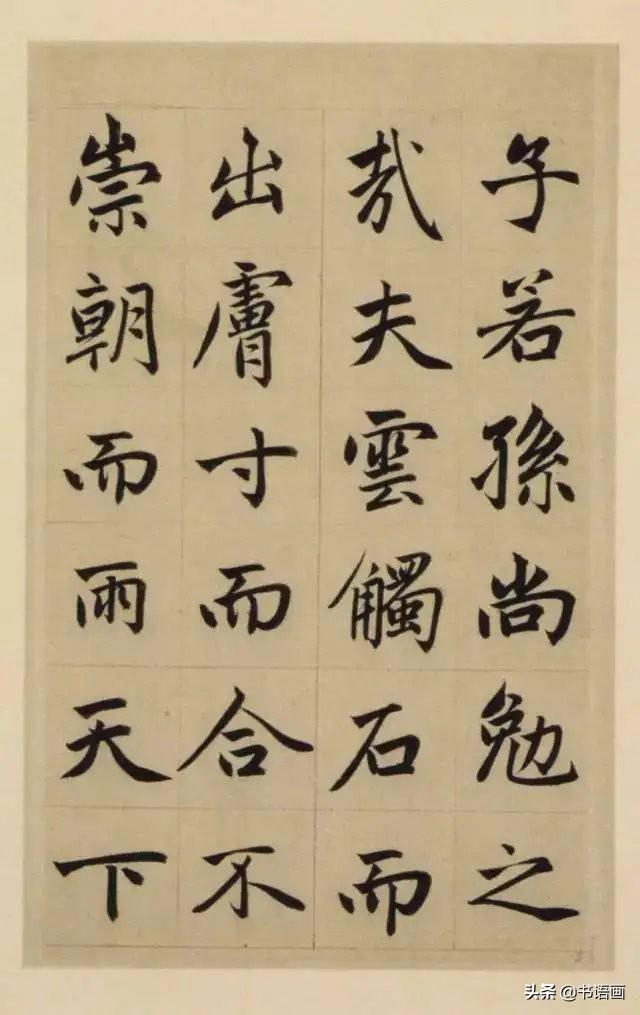 子若孫尚勉之
哉夫雲觸石而
出膚寸而合不
崇朝而雨天下
头条 @书语画